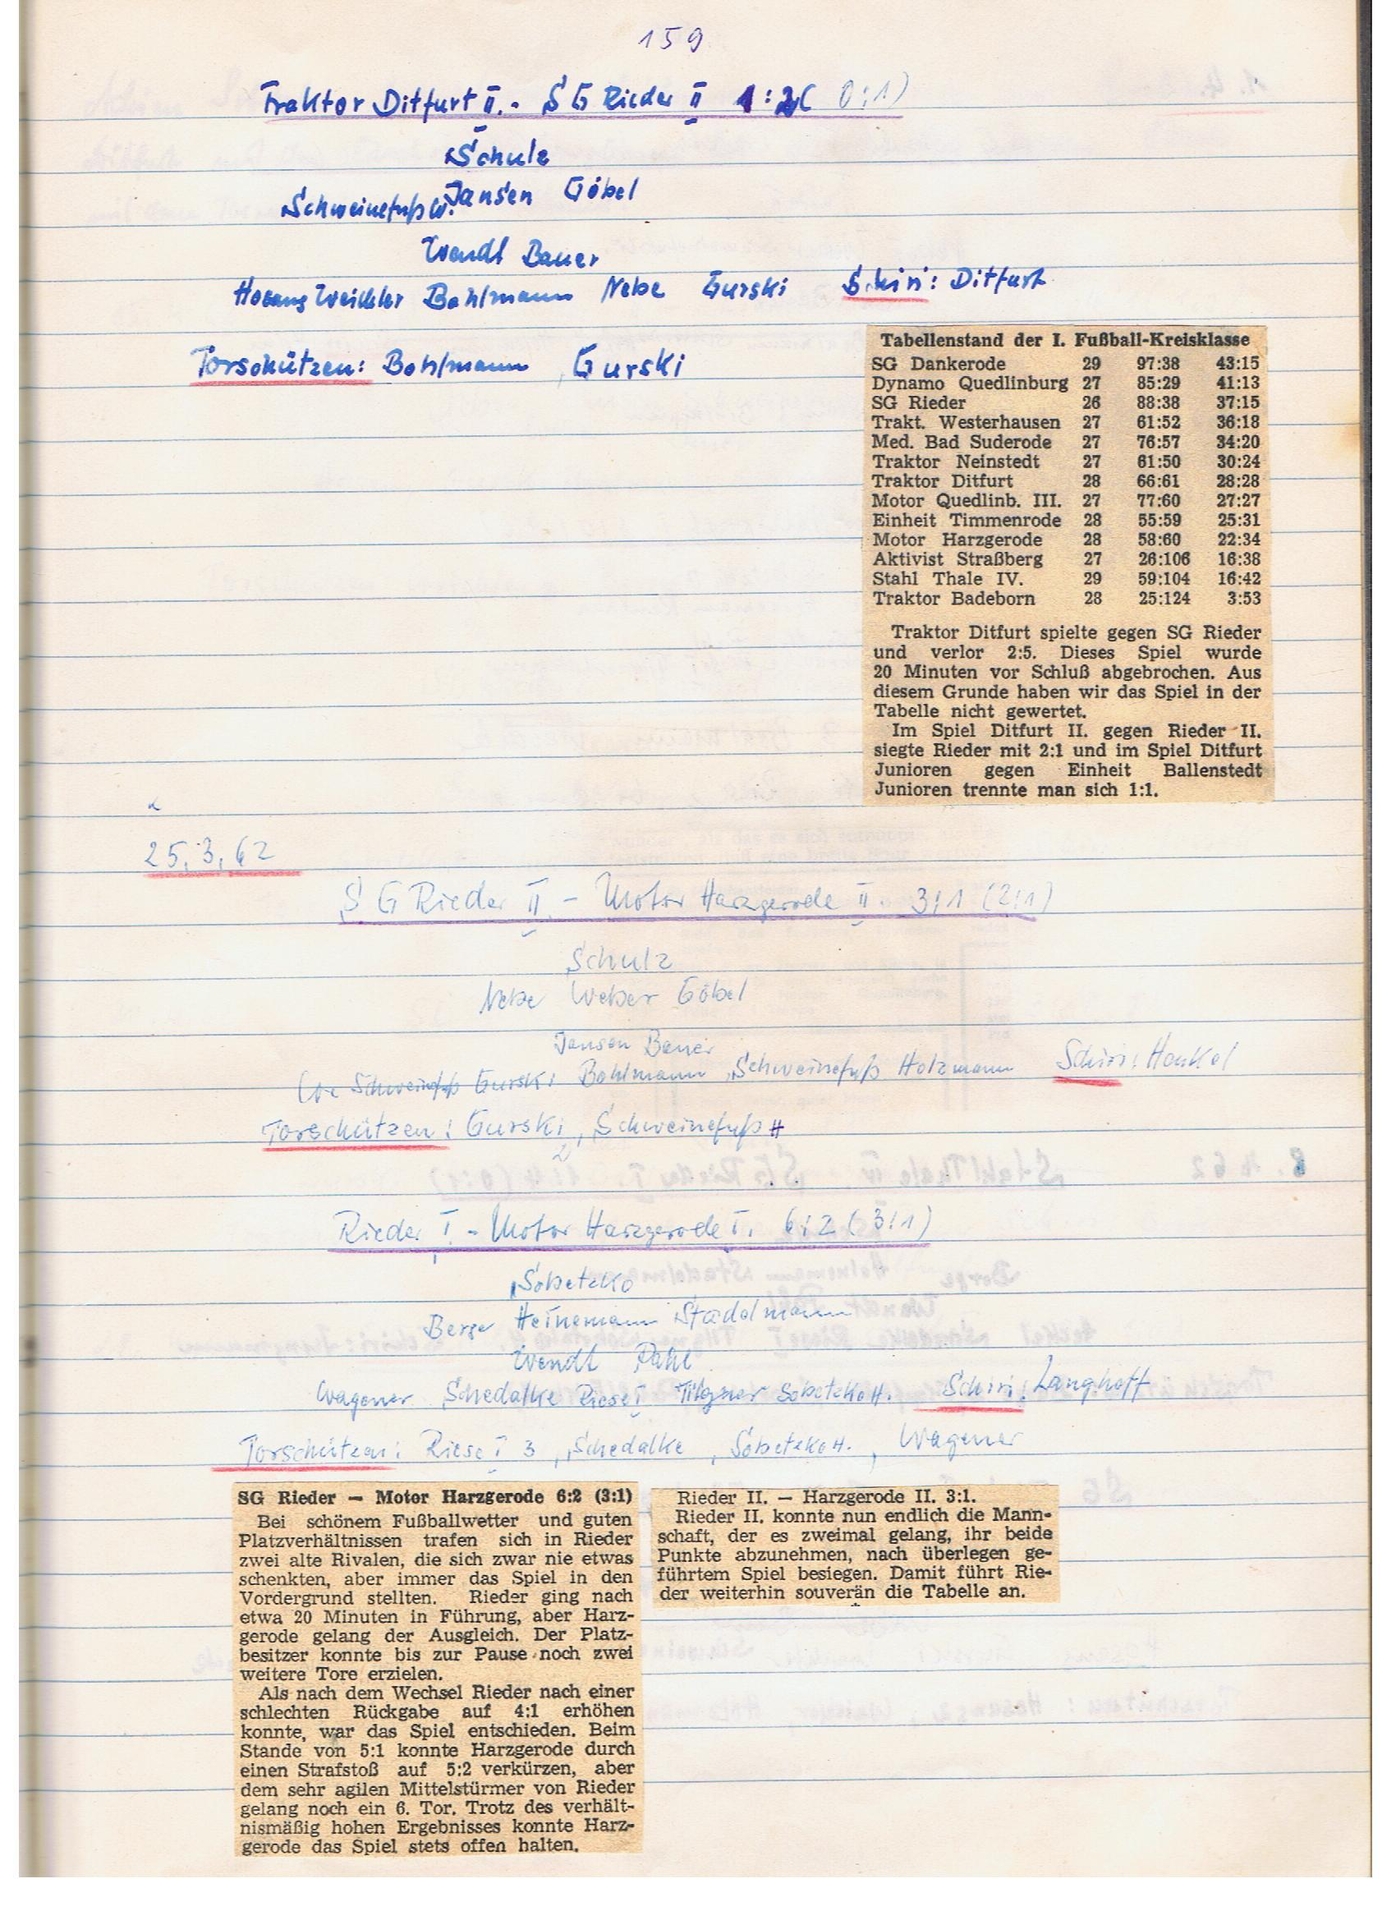 159
Traktor Ditfurt II. - SG Rieder II 1:2 (0:1)
Schulz
Schweinefuß W. Jansen Göbel
Wendt Bauer
Hosang Weichler Bohlmann Nebe Gurski Schiri: Ditfurt
Torschützen: Bohlmann, Gurski
Tabellenstand der I. Fußball-Kreisklasse
SG Dankerode 29 97:38 43:15
Dynamo Quedlinburg 27 85:29 41:13
SG Rieder 26 88:38 37:15
Trakt. Westerhausen 27 61:52 36:18
Med. Bad Suderode 27 76:57 34:20
Traktor Neinstedt 27 61:50 30:24
Traktor Ditfurt 28 66:61 28:28
Motor Quedlinb. III. 27 77:60 27:27
Einheit Timmenrode 28 55:59 25:31
Motor Harzgerode 28 58:60 22:34
Aktivist Straßberg 27 26:106 16:38
Stahl Thale IV. 29 59:104 16:42
Traktor Badeborn 28 25:124 3:53
Traktor Ditfurt spielte gegen SG Rieder
und verlor 2:5. Dieses Spiel wurde
20 Minuten vor Schluß abgebrochen. Aus
diesem Grunde haben wir das Spiel in der
Tabelle nicht gewertet.
Im Spiel Ditfurt II. gegen Rieder II.
siegte Rieder mit 2:1 und im Spiel Ditfurt
Junioren gegen Einheit Ballenstedt
Junioren trennte man sich 1:1.
25.3.62
SG Rieder II - Motor Harzgerode II. 3:1 (2:1)
Schulz
Nebe Weber Göbel
Jansen Bauer
Schweinefuß Gurski Bohlmann, Schweinefuß Holzmann Schiri: Henkel
Torschützen: Gurski 2, Schweinefuß H
Rieder I - Motor Harzgerode I. 6:2 (3:1)
Sobetzko
Berger Heinemann Stadelmann
Wendt Pahl
Wagener Schedalke Riese I Tilgner Sobetzko H. Schiri: Langhoff
Torschützen: Riese I 3, Schedalke, Sobetzko H., Wagener
SG Rieder — Motor Harzgerode 6:2 (3:1)
Bei schönem Fußballwetter und guten
Platzverhältnissen trafen sich in Rieder
zwei alte Rivalen, die sich zwar nie etwas
schenkten, aber immer das Spiel in den
Vordergrund stellten. Rieder ging nach
etwa 20 Minuten in Führung, aber Harz-
gerode gelang der Ausgleich. Der Platz-
besitzer konnte bis zur Pause noch zwei
weitere Tore erzielen.
Als nach dem Wechsel Rieder nach einer
schlechten Rückgabe auf 4:1 erhöhen
konnte, war das Spiel entschieden. Beim
Stande von 5:1 konnte Harzgerode durch
einen Strafstoß auf 5:2 verkürzen, aber
dem sehr agilen Mittelstürmer von Rieder
gelang noch ein 6. Tor. Trotz des verhält-
nismäßig hohen Ergebnisses konnte Harz-
gerode das Spiel stets offen halten.
Rieder II. — Harzgerode II. 3:1.
Rieder II. konnte nun endlich die Mann-
schaft, der es zweimal gelang, ihr beide
Punkte abzunehmen, nach überlegen ge-
führtem Spiel besiegen. Damit führt Rie-
der weiterhin souverän die Tabelle an.